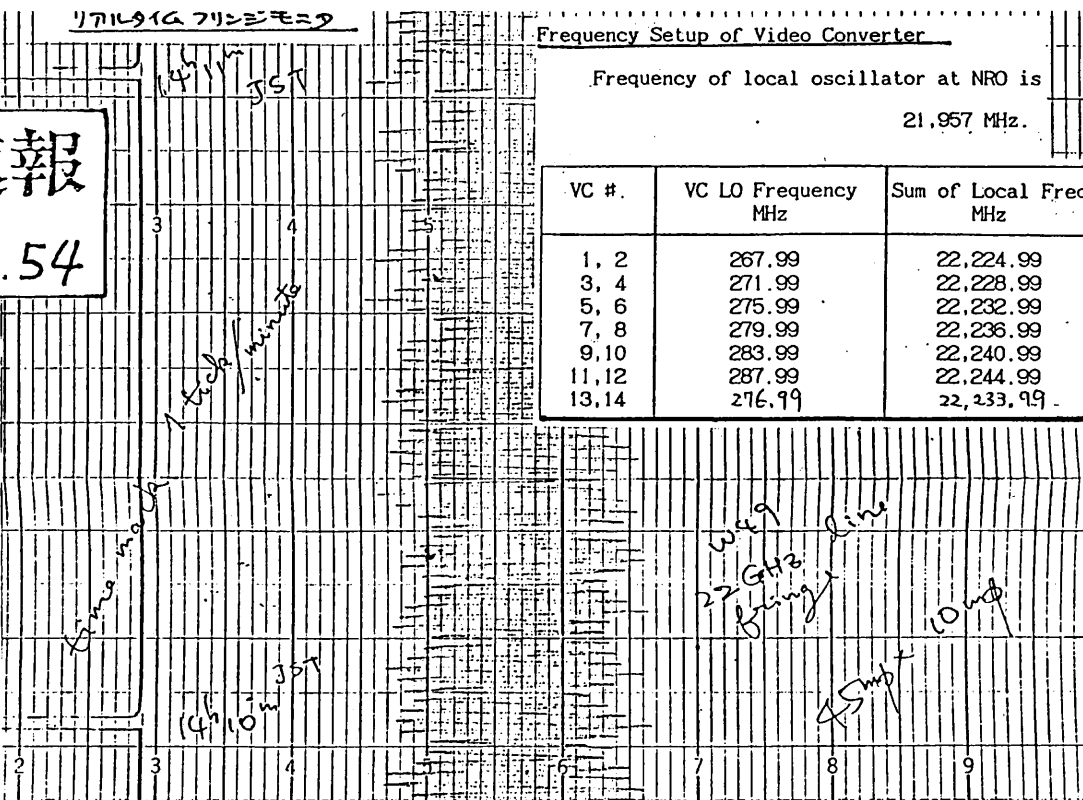 リアルタイム フリンジモニタ
14h 11m
JST
報
.54
3 4 5
time mark 1 tick/minute
14h 10m JST
2 3 4 6 7 8 9
Frequency Setup of Video Converter
Frequency of local oscillator at NRO is
21,957 MHz.
VC #. VC LO Frequency Sum of Local Freq
MHz MHz
1, 2 267.99 22,224.99
3, 4 271.99 22,228.99
5, 6 275.99 22,232.99
7, 8 279.99 22,236.99
9,10 283.99 22,240.99
11,12 287.99 22,244.99
13,14 276.99 22,233.99
W49
22 GHz line
fringe
45mφ 10mφ